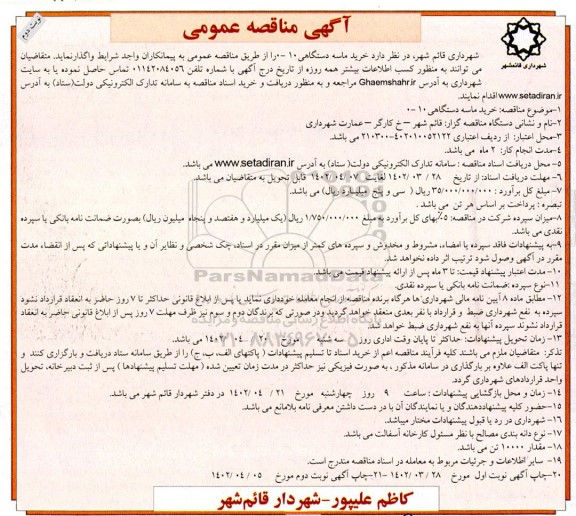 آگهی مناقصه عمومی
نوبت دوم
شهرداری قائمشهر
شهرداری قائم شهر، در نظر دارد خرید ماسه دستگاهی ۱۰-۰ را از طریق مناقصه عمومی به پیمانکاران واجد شرایط واگذارنماید. متقاضیان
می توانند به منظور کسب اطلاعات بیشتر همه روزه از تاریخ درج آگهی با شماره تلفن ۰۱۱۴۲۰۸۴۰۵۶ تماس حاصل نموده یا به سایت
شهرداری به آدرس Ghaemshahr.ir مراجعه و به منظور دریافت و خرید اسناد مناقصه به سامانه تدارک الکترونیکی دولت(ستاد) به آدرس
www.setadiran.ir اقدام نمایند.
۱-موضوع مناقصه: خرید ماسه دستگاهی ۱۰-۰
۲-نام و نشانی دستگاه مناقصه گزار: قائم شهر –خ کارگر – عمارت شهرداری
۳-محل اعتبار: از ردیف اعتباری ۴۰۲۰۱۰۰۵۲۱۲۲-۲۱۰۳۰۰ می باشد.
۴-مدت انجام کار: ۲ ماه می باشد.
۵- محل دریافت اسناد مناقصه : سامانه تدارک الکترونیکی دولت( ستاد) به آدرس www.setadiran.ir می باشد.
۶- مهلت دریافت اسناد: از تاریخ ۲۸ / ۰۳ /۱۴۰۲ لغایت ۰۷ /۰۴ /۱۴۰۲ قابل تحویل به متقاضیان می باشد.
۷- مبلغ کل برآورد : ۳۵/۰۰۰/۰۰۰/۰۰۰ ریال ( سی و پنج میلیارد ریال) می باشد.
تبصره : پرداخت بر اساس هر تن می باشد .
۸-میزان سپرده شرکت در مناقصه: ۵٪بهای کل برآورد به مبلغ ۱/۷۵۰/۰۰۰/۰۰۰ ریال (یک میلیارد و هفتصد و پنجاه میلیون ریال) بصورت ضمانت نامه بانکی یا سپرده
نقدی می باشد.
۹-به پیشنهادات فاقد سپرده یا امضاء، مشروط و مخدوش و سپرده های کمتر از میزان مقرر در اسناد، چک شخصی و نظایر آن و یا پیشنهاداتی که پس از انقضاء مدت
مقرر در آگهی وصول شود ترتیب اثر داده نخواهد شد.
۱۰- مدت اعتبار پیشنهاد قیمت: تا ۳ ماه پس از ارائه پیشنهاد قیمت می باشد
۱۱-نوع سپرده :ضمانت نامه بانکی یا سپرده نقدی.
۱۲- مطابق ماده ۸ آیین نامه مالی شهرداری ها هرگاه برنده مناقصه از انجام معامله خودداری نماید یا پس از ابلاغ قانونی حداکثر تا ۷ روز حاضر به انعقاد قرارداد نشود
سپرده به نفع شهرداری ضبط و قرارداد با نفر بعدی منعقد خواهد گردید ودر صورتی که برندگان دوم و سوم نیز ظرف مهلت ۷ روز پس از ابلاغ قانونی حاضر به انعقاد
قرارداد نشوند سپرده آنها به نفع شهرداری ضبط خواهد شد.
۱۳- زمان تحویل پیشنهادات: حداکثر تا پایان وقت اداری روز سه شنبه مورخ ۲۰ / ۰۴ /۱۴۰۲
تذکر: متقاضیان ملزم می باشند کلیه فرآیند مناقصه اعم از خرید اسناد تا تسلیم پیشنهادات ( پاکتهای الف، ب، ج) را از طریق سامانه ستاد دریافت و بارگزاری کنند و
تنها پاکت الف علاوه بر بارگذاری در سامانه مذکور ، به صورت فیزیکی نیز حداکثر در مدت زمان تعیین شده ( مهلت تسلیم پیشنهادها ) پس از ثبت دبیرخانه، تحویل
واحد قراردادهای شهرداری گردد.
۱۴- زمان و محل بازگشایی پیشنهادات : ساعت ۹ روز چهارشنبه مورخ ۲۱ / ۰۴ /۱۴۰۲ در دفتر شهردار قائم شهر می باشد.
۱۵-حضور کلیه پیشنهاددهندگان و یا نمایندگان آن با در دست داشتن معرفی نامه بلامانع می باشد.
۱۶- شهرداری در رد یا قبول پیشنهادات مختار میباشد.
۱۷-نوع دانه بندی مصالح با نظر مسئول کارخانه آسفالت می باشد.
۱۸- مقدار ۱۰۰۰۰ تن می باشد.
۱۹- سایر اطلاعات و جزئیات مربوط به معامله در اسناد مناقصه مندرج است.
۲۰-چاپ آگهی نوبت اول مورخ ۲۸ / ۰۳ /۱۴۰۲ -۲۱-چاپ آگهی نوبت دوم مورخ ۰۵ / ۰۴ /۱۴۰۲
کاظم علیپور-شهردار قائم‌شهر
ParsNamadData
پایگاه اطلاع رسانی مناقصه و مزایده